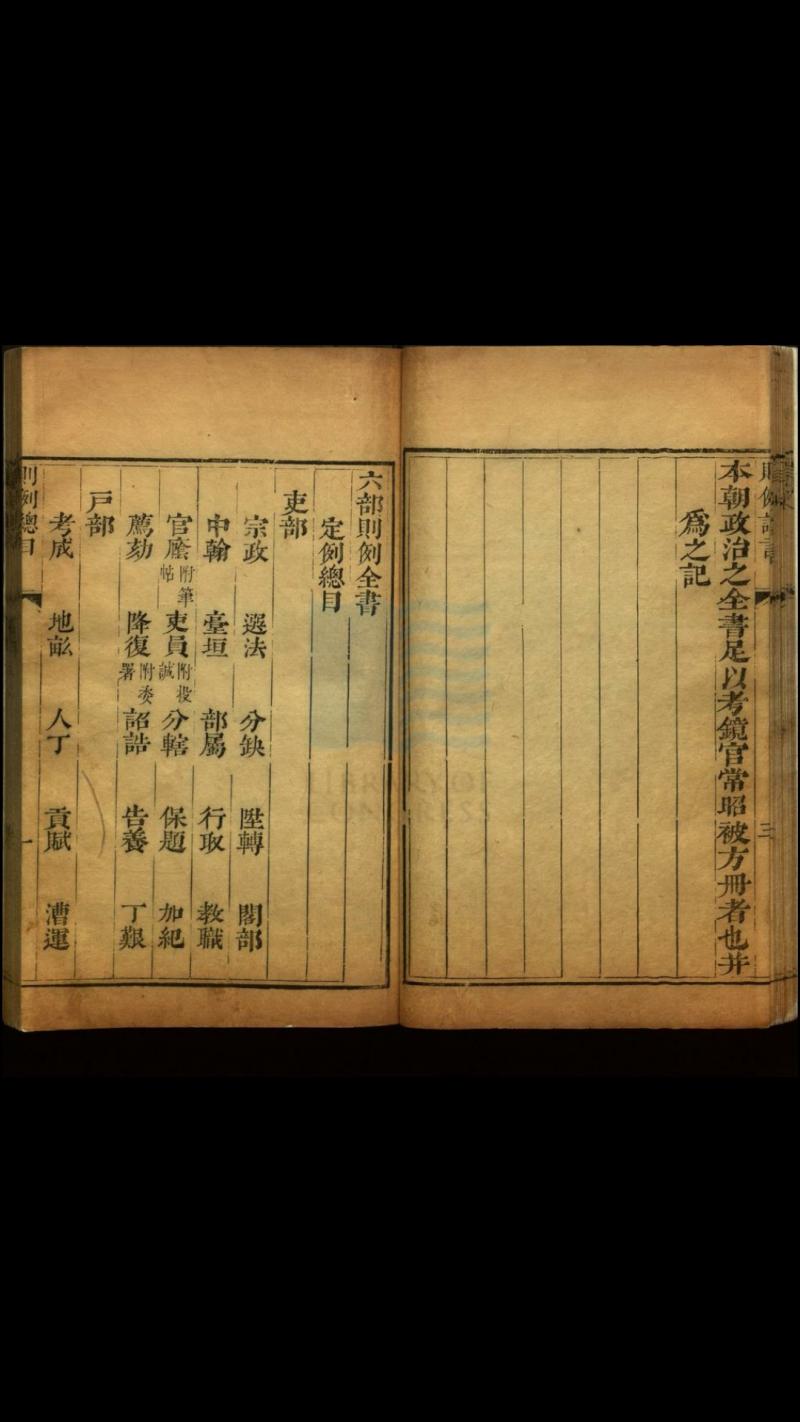 本朝政治之全書足以考鏡官常昭被方冊者也并
爲之記
三
六部則例全書
定例總目
吏部
宗政 選法 分缺 陞轉 閣部
中翰 臺垣 部屬 行取 教職
官廕附筆帖 吏員附投誠 分轄 保題 加紀
薦劾 降復附委署 詔誥 告養 丁艱
戶部
考成 地畝 人丁 貢賦 漕運
則例總目
一